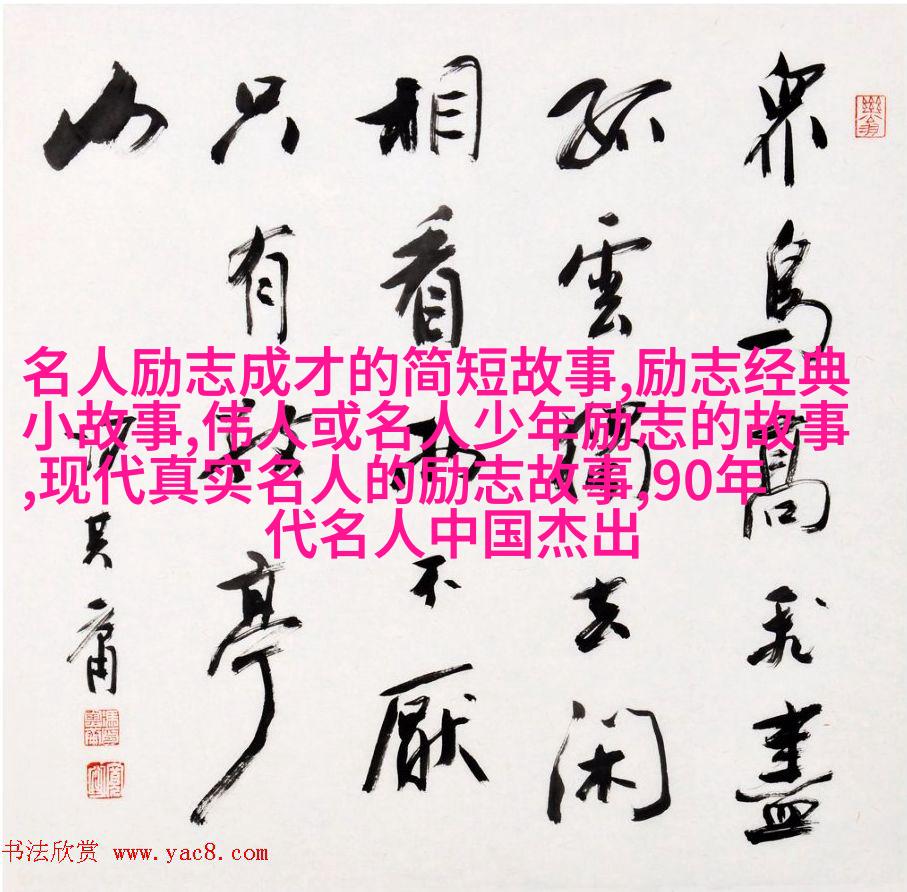 衆鳥高飛盡
孤雲獨去閑
相看兩不厭
只有敬亭
山
馮其庸
名人励志成才的简短故事,励志经典
小故事,伟人或名人少年励志的故事
,现代真实名人的励志故事,90年
代名人中国杰出
书法欣赏 www.yac8.com